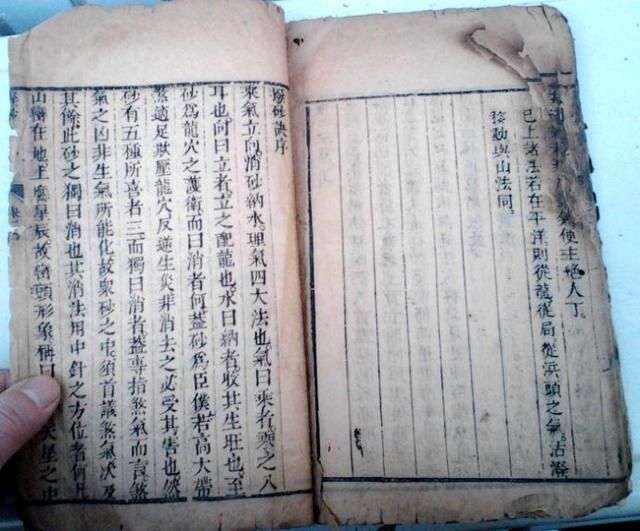 使主絕人丁。
已上諸法若在平洋則從龍從局從浜頭之氣。活潑
移動與山法同。
撥砂訣序
乘氣立向消砂納水。理氣四大法也。氣曰乘者。頭之入
耳也。向曰立者。立之配龍也。水曰納者。收其生旺也。至
砂爲龍穴之護衛。而曰消者何。蓋砂爲臣僕。若高大帶
煞。適足以壓龍穴。反逆生災。非消去之必受其害也。然
砂有五種。所喜者三。而獨曰消者。蓋專指煞氣而言。煞
氣之凶。非生氣所能化。故衆砂之中。須首議煞氣。次及
其餘。此砂之獨曰消也。其消法用中針之方位者。何
山 在地主應星辰。故巒頭形象。稱曰 天星之中